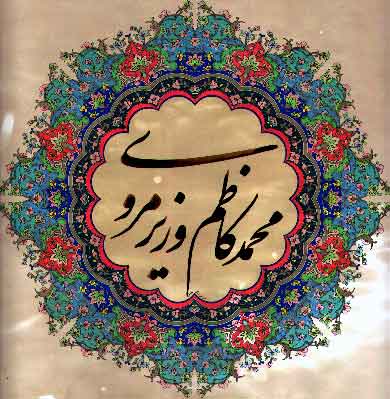 محمد کاظم وزیر مروی